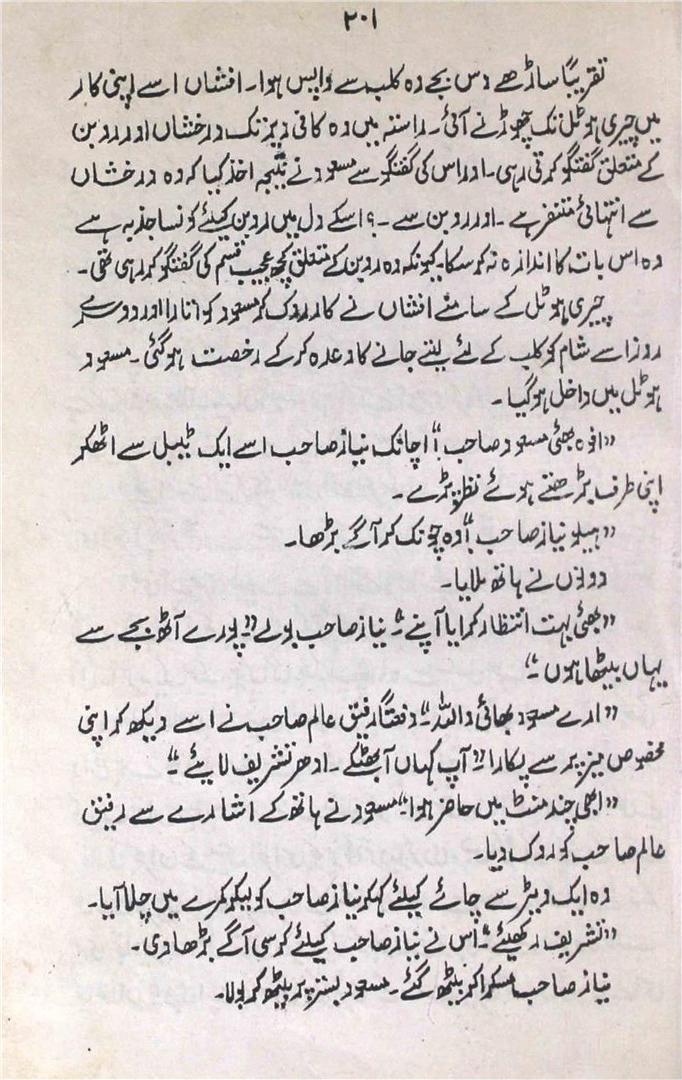 ۲۰۱
تقریباً ساڑھے دس بجے وہ کلب سے واپس ہوا۔ افشاں اسے اپنی کار
میں چیری ہوٹل تک چھوڑنے آئی۔ راستہ میں وہ کافی دیر تک درخشاں اور روبن
کے متعلق گفتگو کرتی رہی۔ اور اس کی گفتگو سے مسعود نے نتیجہ اخذ کیا کہ وہ درخشاں
سے انتہائی متنفر ہے۔ اور روبن سے۔ ؟ اسکے دل میں روبن کیلئے کونسا جذبہ ہے
وہ اس بات کا اندازہ نہ کر سکا۔ کیونکہ وہ روبن کے متعلق کچھ عجیب قسم کی گفتگو کر رہی تھی۔
چیری ہوٹل کے سامنے افشاں نے کار روک کر مسعود کو اتارا اور دوسرے
روز اسے شام کو کلب کے لئے لینے جانے کا وعدہ کر کے رخصت ہو گئی۔ مسعود
ہوٹل میں داخل ہو گیا۔
”افوہ بھئی مسعود صاحب!“ اچانک نیاز صاحب اسے ایک ٹیبل سے اٹھکر
اپنی طرف بڑھتے ہوئے نظر پڑے۔
”ہیلو نیاز صاحب!“ وہ چونک کر آگے بڑھا۔
دونوں نے ہاتھ ملایا۔
”بھئی بہت انتظار کرایا آپنے۔“ نیاز صاحب بولے ”پورے آٹھ بجے سے
یہاں بیٹھا ہوں۔“
”ارے مسعود بھائی واللہ۔“ دفعتاً رفیق عالم صاحب نے اسے دیکھ کر اپنی
مخصوص میز پر سے پکارا ”آپ کہاں آ بھٹکے۔ ادھر تشریف لایئے۔“
”ابھی چند منٹ میں حاضر ہوا۔“ مسعود نے ہاتھ کے اشارے سے رفیق
عالم صاحب کو روک دیا۔
وہ ایک ویٹر سے چائے کیلئے کہکر نیاز صاحب کو لیکر کمرے میں چلا آیا۔
”تشریف رکھیئے۔“ اس نے نیاز صاحب کیلئے کرسی آگے بڑھا دی۔
نیاز صاحب مسکرا کر بیٹھ گئے۔ مسعود بستر پر بیٹھ کر بولا۔